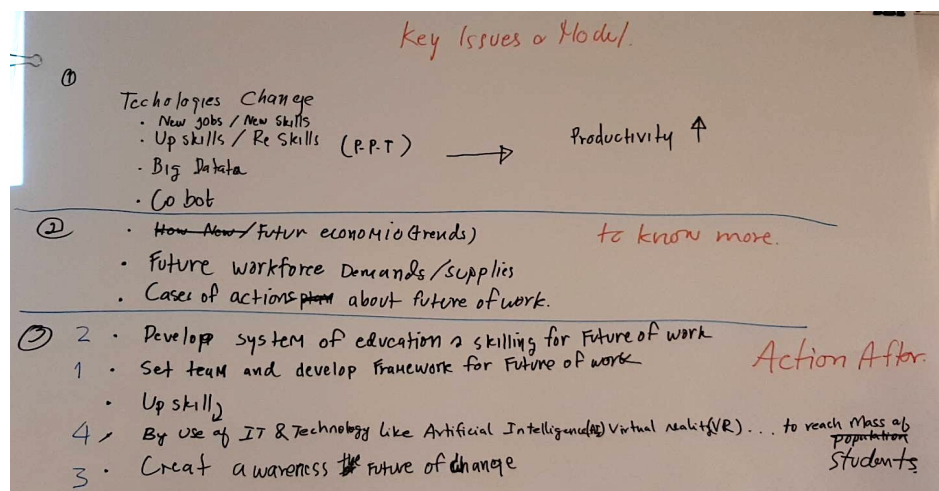 Key Issues & Model.
①
Techologies Change
· New jobs / New Skills
· Up skills / Re Skills (P-P-T) → Productivity ↑
· Big Datata
· Co bot
②
· How New / Futur economic (trends) to know more.
· Future workforce Demands/supplies
· Cases of actions plan about future of work.
③
2 · Develop system of education & skilling for Future of work
1 · Set team and develop Framework for Future of work
Action After.
· Up skill
4 · By Use of IT & Technology like Artificial Intelligence(AI) Virtual reality(VR)... to reach Mass of
population
students
3 · Creat awareness Future of change